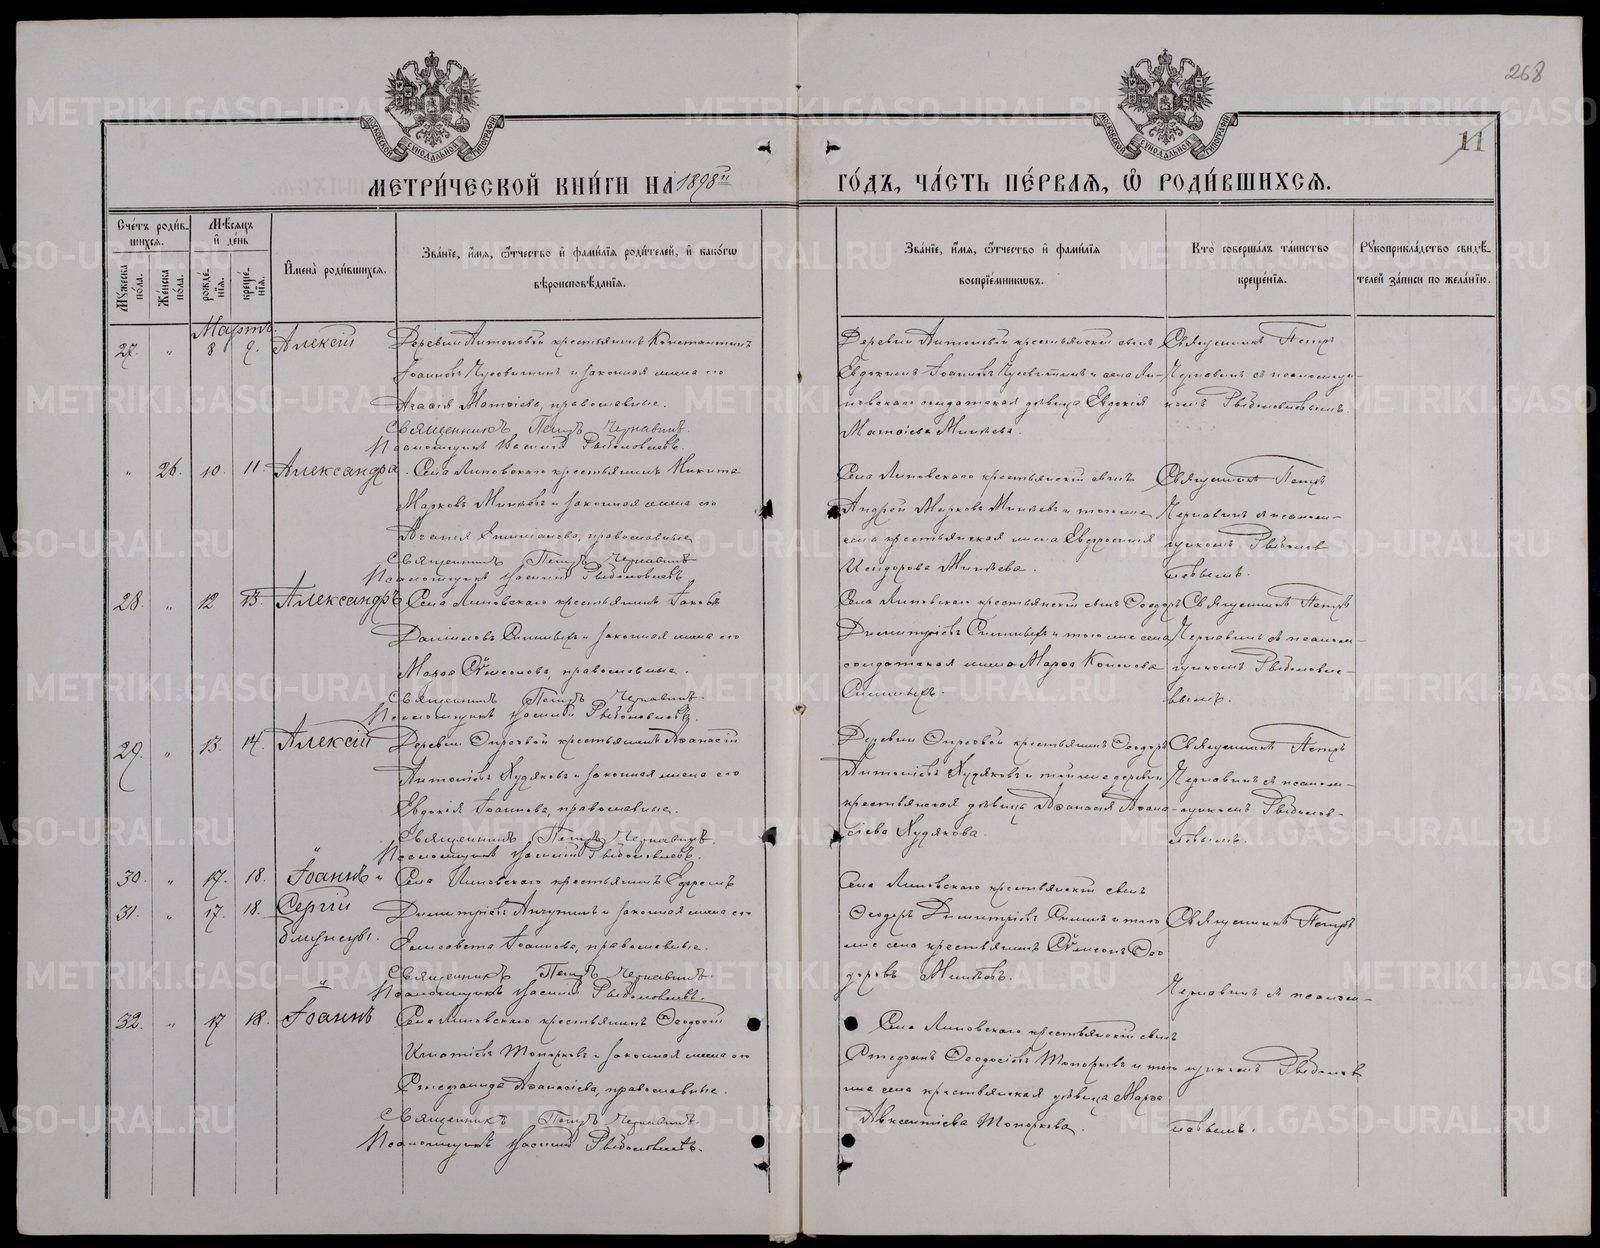 268
11
МЕТРИ́ЧЕСКОЙ КНИ́ГИ НА 1898 й
ГО́ДЪ, ЧА́СТЬ ПЕ́РВАЯ, Ѽ РОДИ́ВШИХСЯ.
Сче́тъ роди́в-
шихся.
Мѣсяцъ
и҆ де́нь
Мꙋжеска по́ла.
Же́нска по́ла.
рожде́-
нїя.
креще́-
нїя.
И҆мена̀ роди́вшихся.
Зва́нїе, и҆́мя, ѻ҆́тчество и҆ фами́лїя роди́телей, и҆ како́гѡ
вѣроисповѣ́данїя.
Зва́нїе, и҆́мя, ѻ҆́тчество и҆ фами́лїя
воспрїе́мникѡвъ.
Кто̀ соверша́лъ та́инство
креще́нїя.
Рꙋкоприкла́дство свидѣ́-
телей за́писи по жела́нїю.
Мартъ.
27. " 8 9. Алексій
Деревни Антоновой крестьянинъ Константинъ
Іоанновъ Чусовитинъ и законная жена его
Агафія Матѳіева, православные.
Священникъ Петръ Чернавинъ.
Псаломщикъ Василій Рыболовлевъ.
Деревни Антоновой крестьянскій сынъ
Евдокимъ Іоанновъ Чусовитинъ и села Ли-
повскаго солдатская дѣвица Евдокія
Матѳіева Миняева.
Священникъ Петръ
Чернавинъ съ псаломщи-
комъ Рыболовлевымъ.
" 26. 10. 11. Александра.
Села Липовскаго крестьянинъ Никита
Марковъ Миняевъ и законная жена его
Агапія, православные
Священникъ Петръ Чернавинъ
Псаломщикъ Василій Рыболовлевъ
Села Липовскаго крестьянскій сынъ
Андрей Марковъ Миняевъ и того же
села крестьянская жена Евфросинія
Исидорова Миняева.
Священникъ Петръ
Чернавинъ съ псалом-
щикомъ Рыболов
левымъ.
28. " 12 13. Александръ
Села Липовскаго крестьянинъ Іаковъ
Даніиловъ и законная жена его
Марѳа Сѵмеонова, православные.
Священникъ Петръ Чернавинъ.
Псаломщикъ Василій Рыболовлевъ.
Села Липовскаго крестьянскій сынъ Ѳеодоръ
Димитріевъ и того же села
солдатская жена Марѳа Кононова
Священникъ Петръ
Чернавинъ съ псалом-
щикомъ Рыболовле-
вымъ.
29. " 13. 14. Алексій
Деревни крестьянинъ Аѳанасій
Антоніевъ Худяковъ и законная жена его
Евдокія Іоаннова, православные.
Священникъ Петръ Чернавинъ.
Псаломщикъ Василій Рыболовлевъ.
Деревни крестьянинъ Ѳеодоръ
Антоніевъ Худяковъ и той же деревни
крестьянская дѣвица Аѳанасія Аѳана-
сіева Худякова.
Священникъ Петръ
Чернавинъ съ псалом-
щикомъ Рыболов-
левымъ.
30. " 17. 18. Іоаннъ и
31. " 17. 18. Сергій
близнецы.
Села Липовскаго крестьянинъ Ефремъ
Димитріевъ и законная жена его
Елисавета Іоаннова, православные.
Священникъ Петръ Чернавинъ.
Псаломщикъ Василій Рыболовлевъ.
Села Липовскаго крестьянскій сынъ
Ѳеодоръ Димитріевъ и того
же села крестьянинъ Сѵмеонъ Ѳео
доровъ Миняевъ.
Священникъ Петръ
Чернавинъ съ псалом-
32. " 17 18. Іоаннъ
Села Липовскаго крестьянинъ Ѳеодосій
Игнатіевъ Топорковъ и законная жена его
Стефанида Аѳанасіева, православные.
Священникъ Петръ Чернавинъ.
Псаломщикъ Василій Рыболовлевъ.
Села Липовскаго крестьянскій сынъ
Стефанъ Ѳеодосіевъ Топорковъ и того
же села крестьянская дѣвица Марѳа
Авксентіева Топоркова.
щикомъ Рыболов
левымъ.